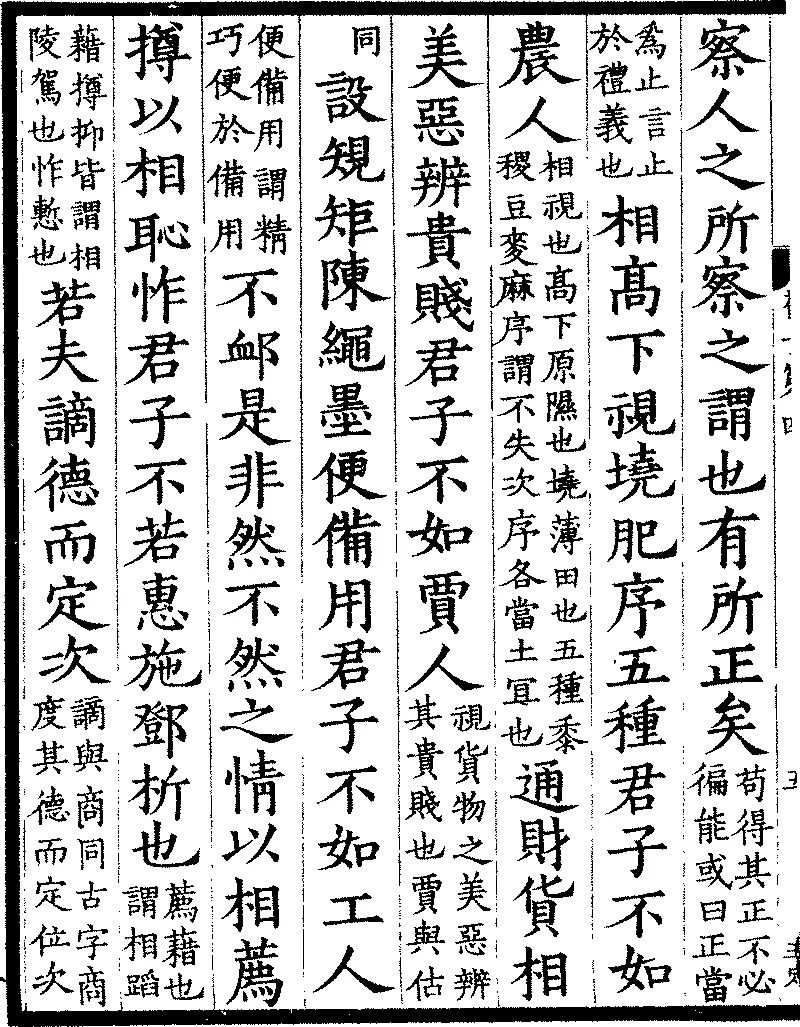 察人之所察之謂也有所正矣
苟得其正不必
徧能或曰正當
爲止言止
於禮義也
相髙下視墝肥序五種君子不如
農人
相視也髙下原隰也墝薄田也五種黍
稷豆麥麻序謂不失次序各當土冝也
通財貨相
美惡辨貴賤君子不如賈人
視貨物之美惡辨
其貴賤也賈與估
同
設䂓矩陳繩墨便備用君子不如工人
便備用謂精
巧便於備用
不䘏是非然不然之情以相薦
撙以相恥怍君子不若惠施鄧析也
薦藉也
謂相蹈
藉撙抑皆謂相
陵駕也怍慙也
若夫謫德而定次
謫與商同古字商
度其德而定位次